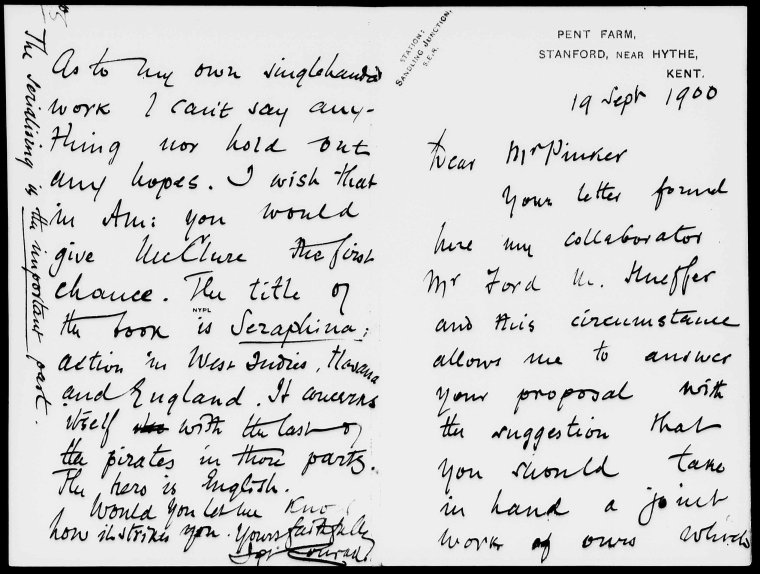 STATION:
SANDLING JUNCTION,
S.E.R.
PENT FARM,
STANFORD, NEAR HYTHE,
KENT.
19 Sept 1900
Dear Mr Pinker
Your letter found
here my collaborator
Mr Ford M. Hueffer
and this circumstance
allows me to answer
your proposal with
the suggestion that
you should take
in hand a joint
work of ours which
As to my own singlehanded
work I can't say any-
thing nor hold out
any hopes. I wish that
in Am: you would
give McClure the first
chance. The title of
NYPL
the book is Seraphina;
action in West Indies, Havana
and England. It concerns
itself with the last of
the pirates in those parts.
The hero is English.
Would you let me know
how it strikes you. Yours faithfully
Jph Conrad.
The serialising is the important part.